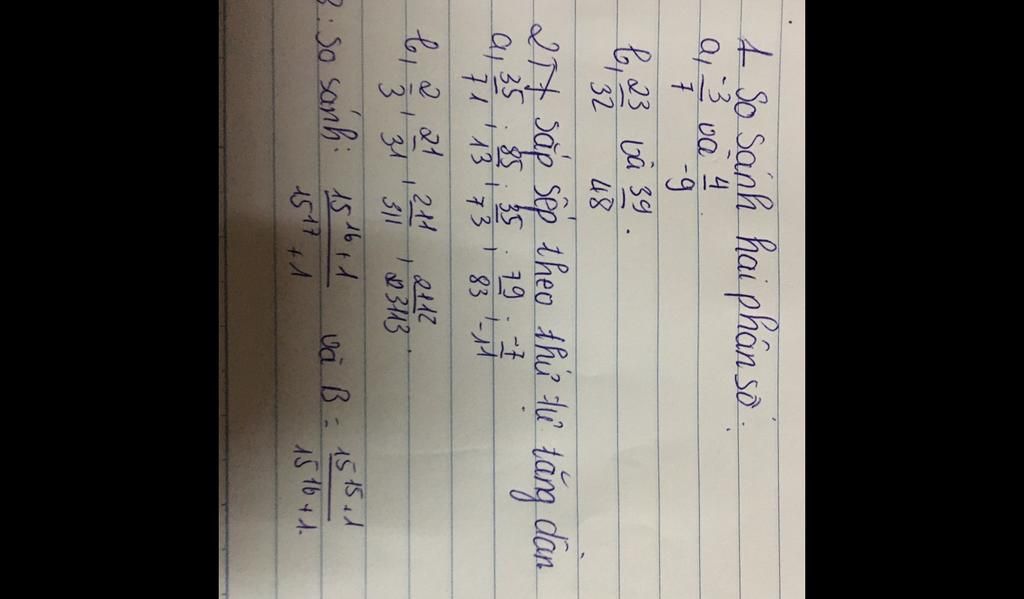 1 So sánh hai phân số.
a, -3/7 và 4/-9
b, 23/32 và 39/48.
2, sắp sếp theo thứ tự tăng dần
a, 35/71, 85/13, 35/73, 79/83, -7/-11
b, 2/3, 21/31, 211/311, 2112/3113.
: So sánh: 15^16+1/15^17+1 và B = 15^15+1/15^16+1.